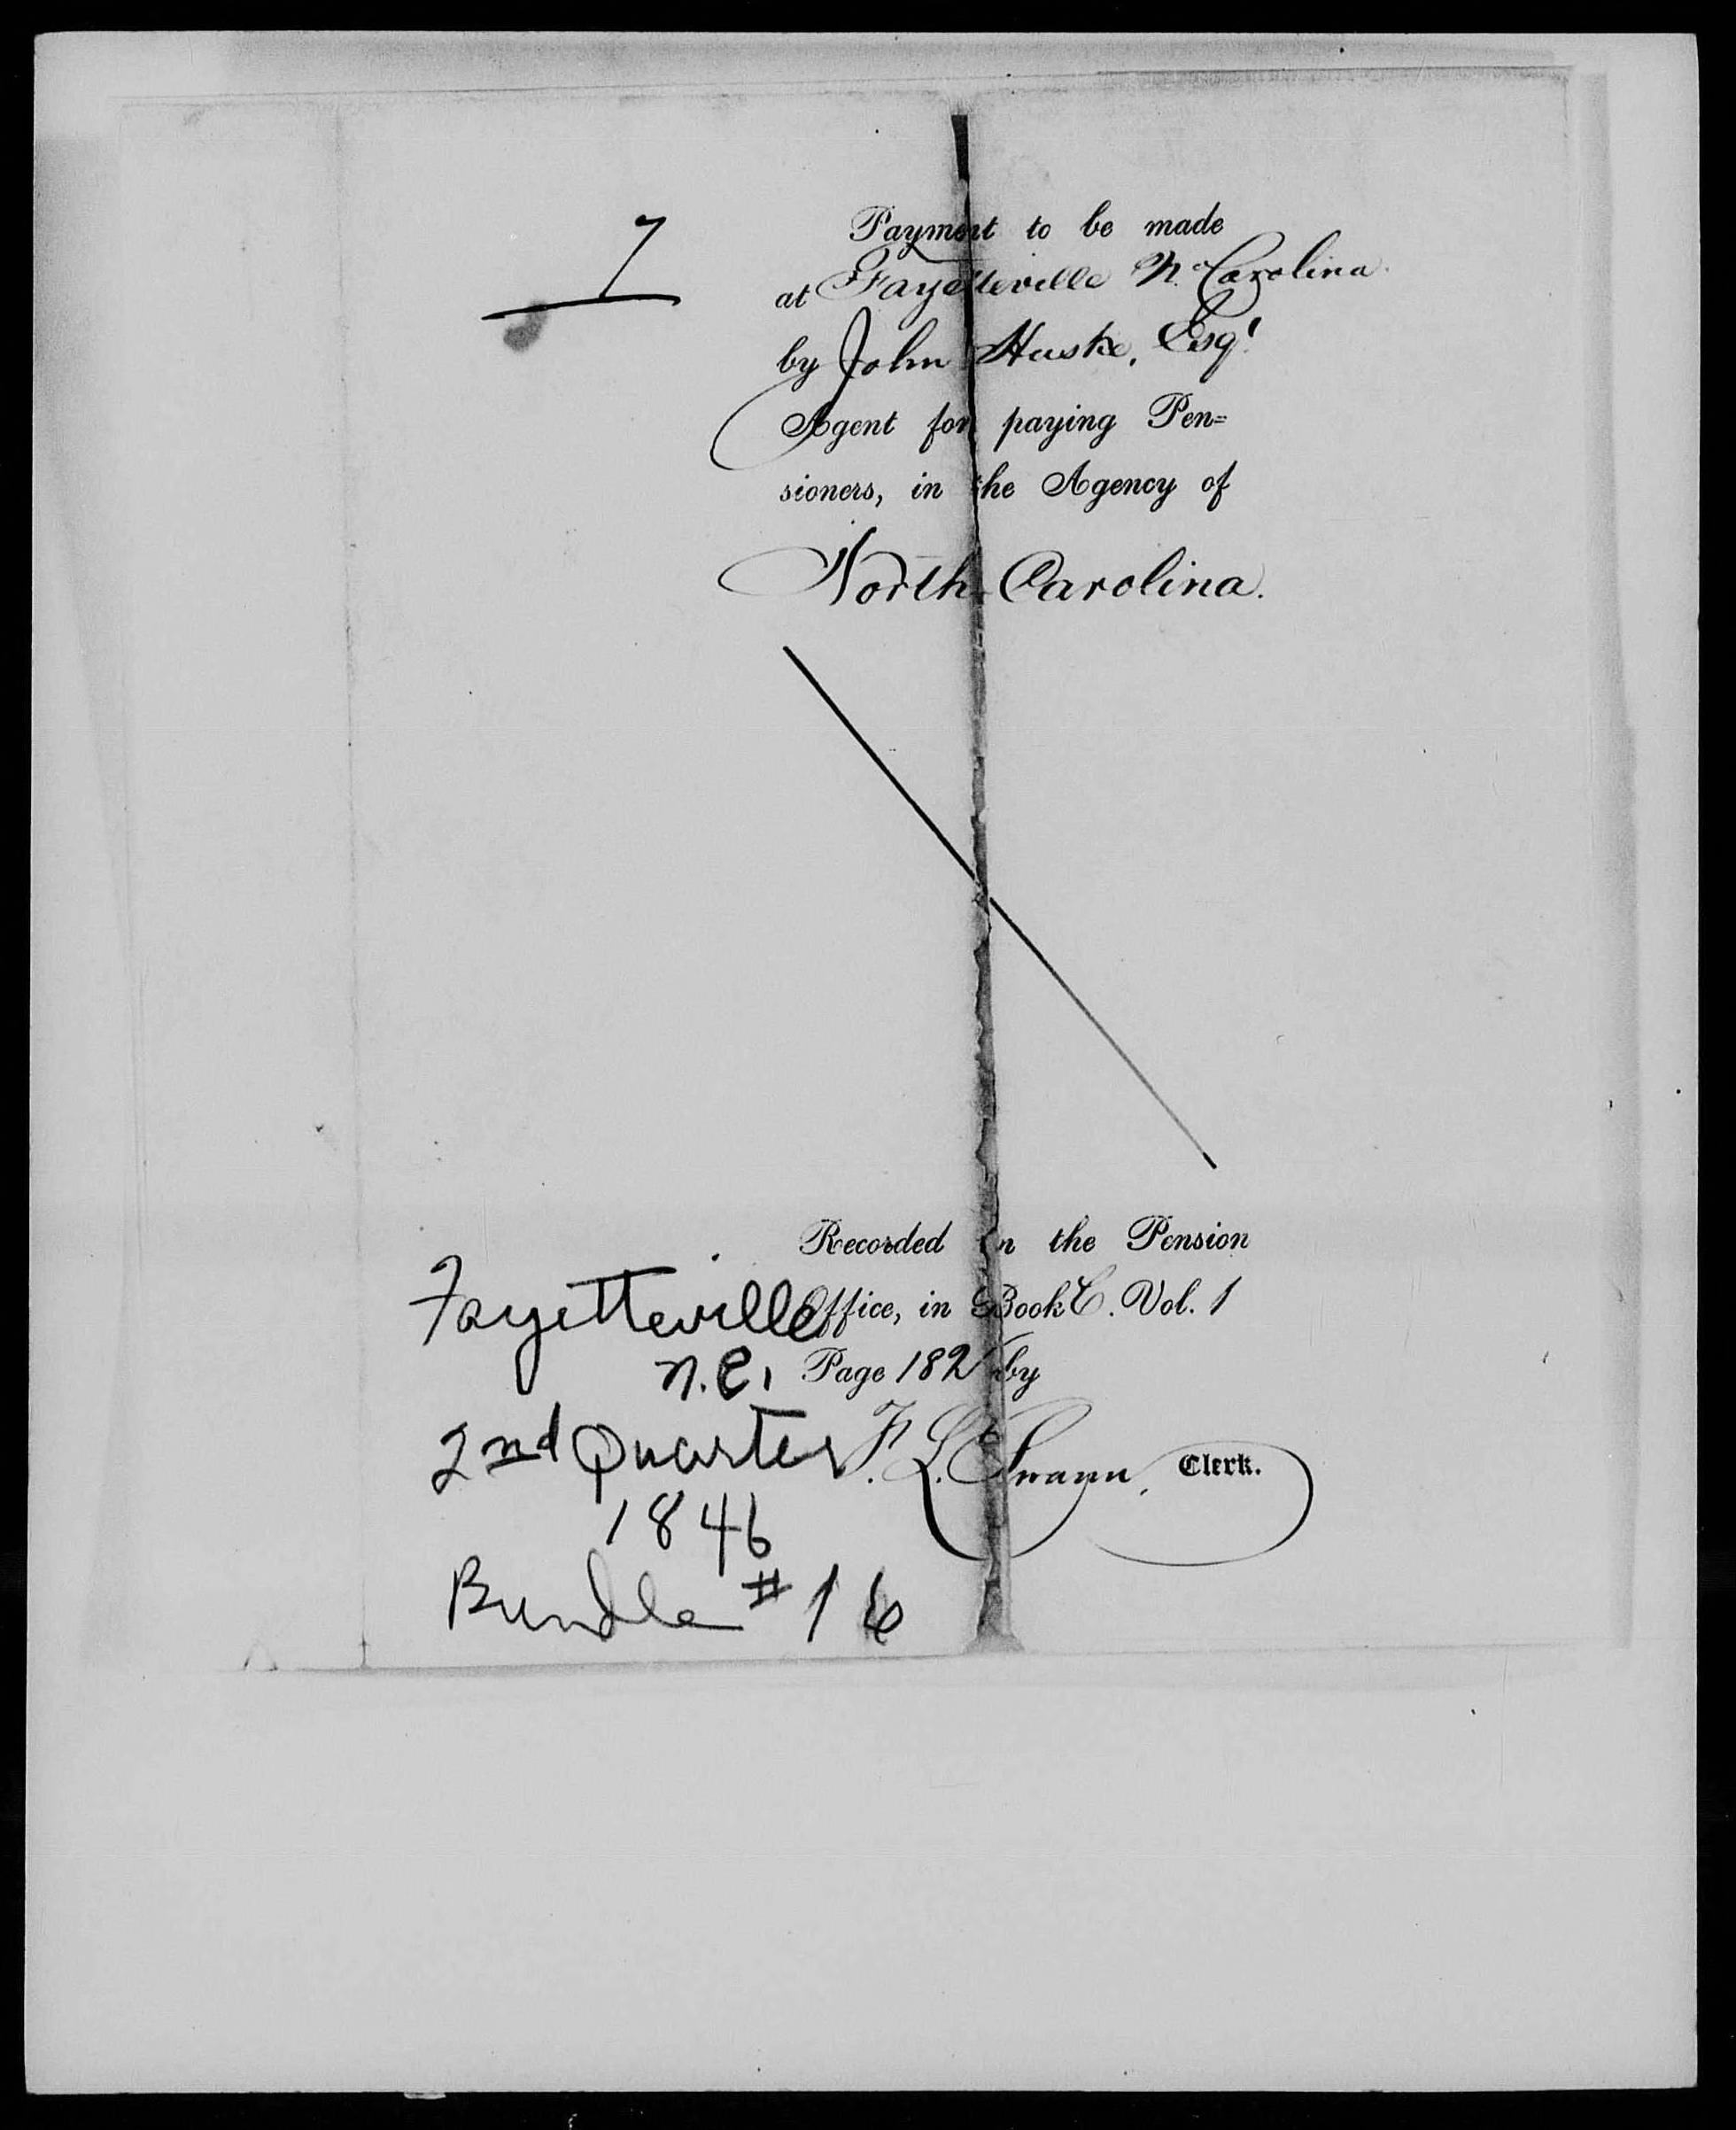 7
Payment to be made
at Fayetteville No. Carolina.
by John Huske, Esqr.
Agent for paying Pen=
sioners, in the Agency of
North Carolina.
Recorded in the Pension
Office, in Book C. Vol. 1
Page 182 by
F. L. Swann, Clerk.
Fayetteville
N.C.
2nd Quarter
1846
Bundle # 16